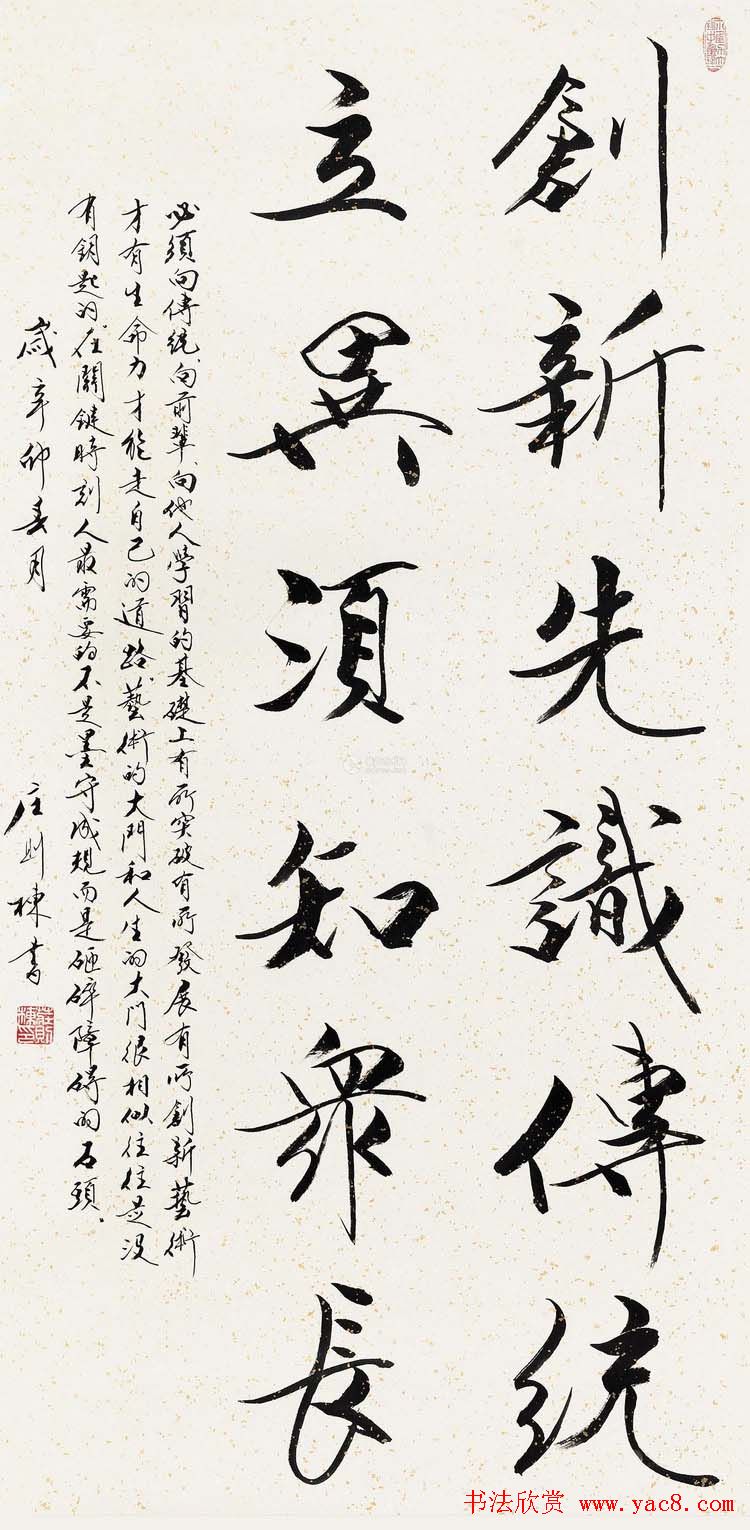 創新先識傳統
立異須知眾長
必須向傳統、向前輩、向他人學習的基礎上有所突破有所發展有所創新藝術
才有生命力才能走自己的道路藝術的大門和人生的大門很相似往往是沒
有鑰匙的在關鍵時刻人最需要的不是墨守成規而是砸碎障碍的石頭、
歲辛卯春月
庄則棟書
莊則棟印
书法欣赏 www.yac8.com